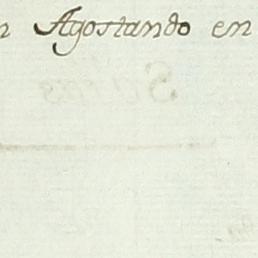 n Agostando en